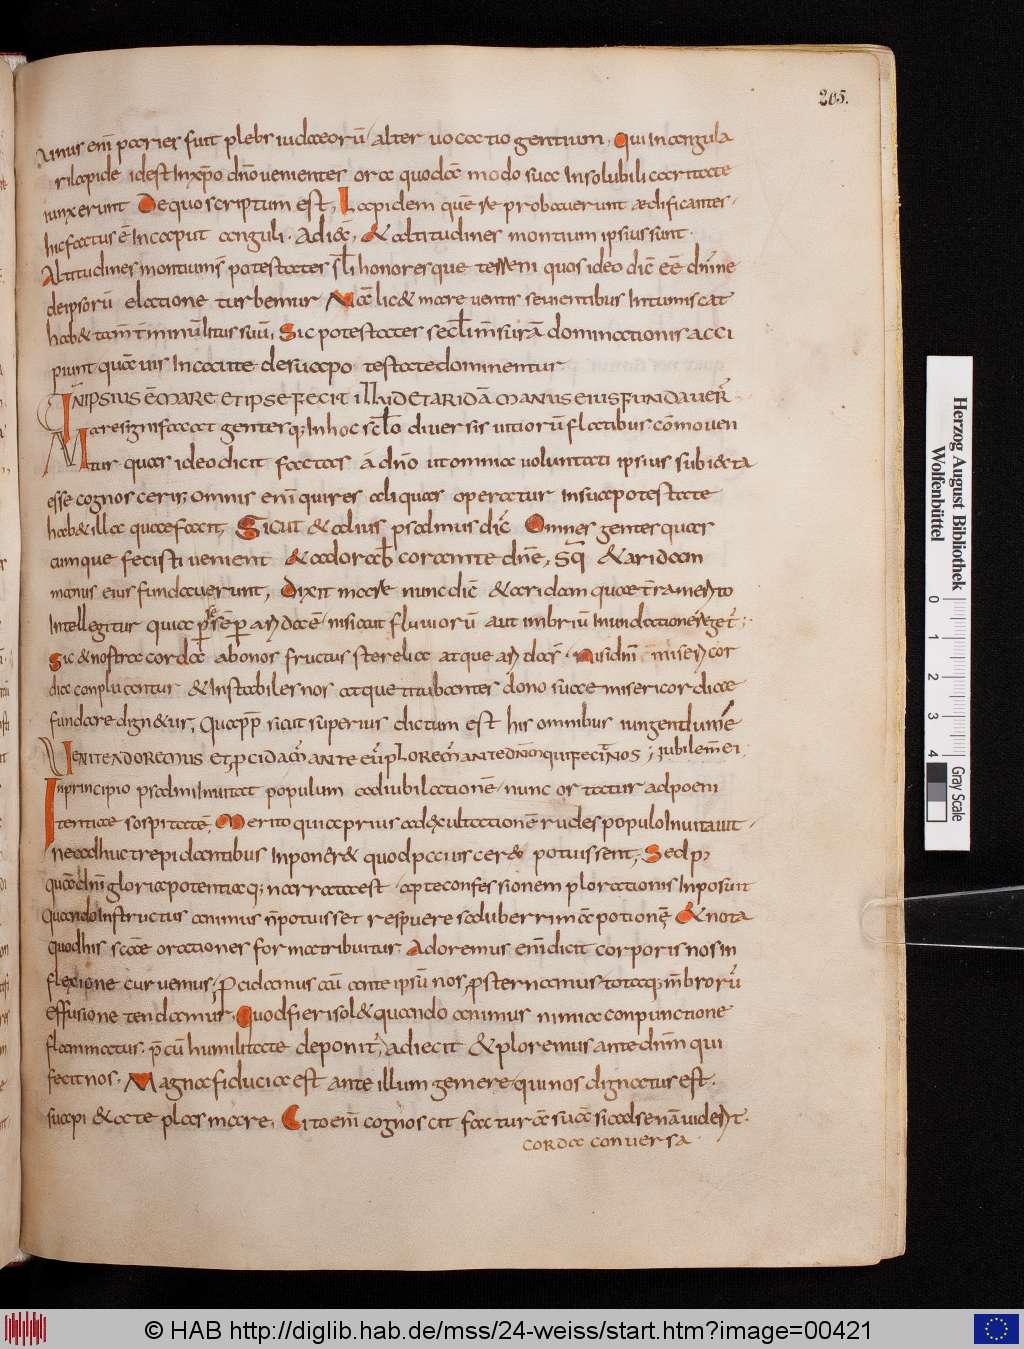 205.
unus eni paries fuit plebs iudaeorū alter uocatio gentium. Qui In angula
ri lapide idest Inxp̄o dn̄o uenientes ora quodā modo suae Insolubili caritate
iunxerunt De quo scriptum est, Lapidem quē reprobauerunt aedificantes.
hic factus ē Incaput anguli. Adiec̄, & altitudines montium ipsius sunt.
Altitudines montium s̄ potestates sc̄li honoresque terreni quos ideo dic̄ eē dn̄i ne
deipsorū elatione turbemur Nā lic& mare uentis seuientibus Intumiscat
hab& tam̄ t̄minū litus suū, Sic potestates secl̄i m̄surā dominationis acci
piunt quā uis Incaute desua po testate dominentur
QM̄ IPSIUS Ē MARE ET IPSE FECIT ILLUD ET ARIDĀ MANUS EIUS FUNDAUER̄
Mare significat gentes q; In hoc sc̄lo diuersis uitiorū flatibus cōmouen
tur quas ideo dicit factas á dn̄o ut omnia uoluntati ipsius subiecta
esse cognosceris; Omnis eni qui res aliquas operatur Insua potestate
hab& illa quae facit, Sicut & alius psalmus dic̄ Omnes gentes quas
cumque fecisti uenient & adorab̄ coram te dn̄e, Sq̄ & aridam
manus eius fundauerunt, Dixit mare nunc dic̄ & aridam quae t̄ra merito
Intellegitur quia p semp arida ē nisi aut fluuiorū aut imbriū Inundatione rēget̄;
Sic & nostra corda abonos fructus sterelia atque arida s̄. Nisi dn̄i miseri cor
dia conplu antur & Instabiles nos atque titubantes dono suae misericordiae
fundare dign&ur, Quapp̄ sicut superius dictum est his omnibus iungentdum ē
VENITE ADOREMUS ET PCIDAM̄ ANTE EŪ PLOREM̄ ANTE DN̄M QUI FECIT NOS; iubilem̄ ei
In principio psalmi Inuitat populum ad iubilationē nunc ortatur ad poeni
tentiae sospitatē, Merito quia prius ad exultationē rudes populo Inuitauit
ne adhuc trepidantibus Inponer& quod pauiscere potuissent, Sed p;
quā dn̄i gloria potentiaq; narrata est apte confessionem plorationis Inposuit
Quando Instructus animus n̄ potuisset respuere saluberrimā potionē, & nota
quod his scāe orationes forma tribuitur Adoremus eni dicit corporis nos in
flexione curuemus, pcidamus cū ante ipsū nos, psternamus totaq; m̄brorū
effusione tendamur. Quod fieri sol& quando animus nimia conpunctione
flammatus. p̄ cū humilitate deponit̄, adiecit & ploremus ante dn̄m qui
fecit nos. Magna fiducia est ante illum gemere qui nos dignatus est.
suapi &ate plasmare, Cito eni cognoscit facturā suā si ad se nā uident.
corda conuersa
Herzog August Bibliothek
Wolfenbüttel
0 1 2 3 4
Gray Scale
© HAB http://diglib.hab.de/mss/24-weiss/start.htm?image=00421